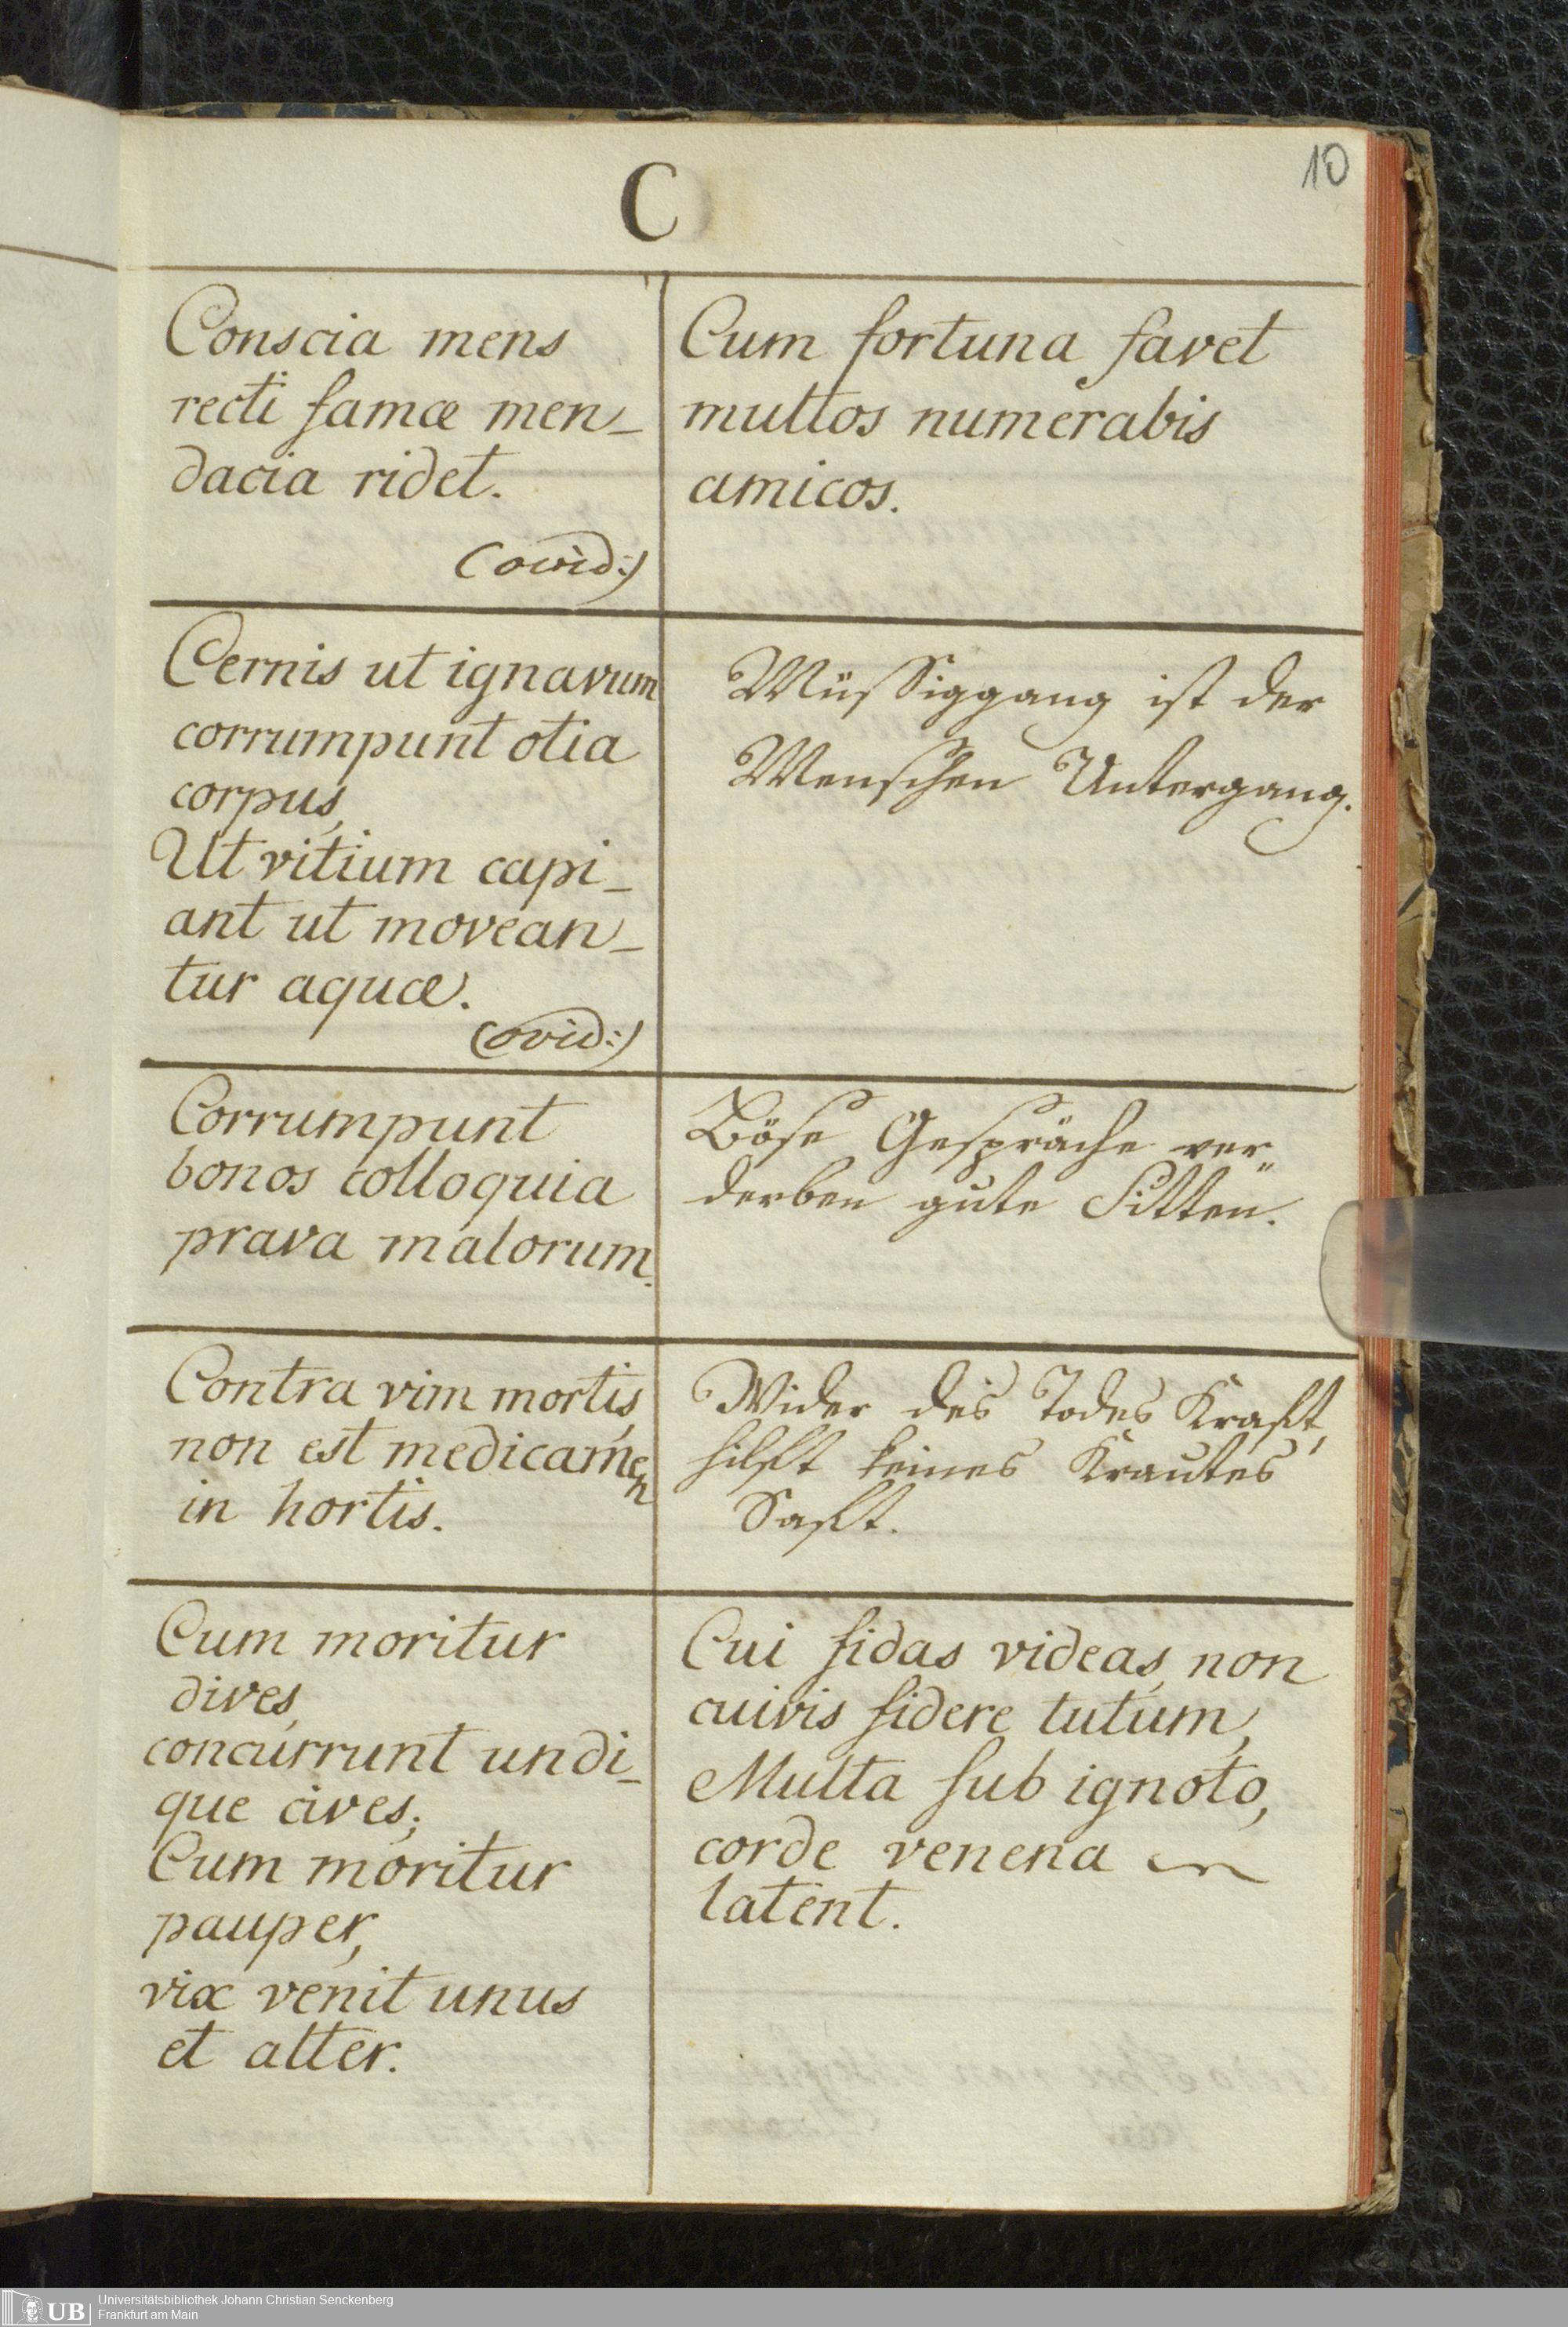 10
C
Conscia mens
recti famæ men-
dacia ridet.
(ovid:)
Cum fortuna favet
multos numerabis
amicos.
Cernis ut ignavum
corrumpunt otia
corpus,
Ut vitium capi-
ant ut movean-
tur aquæ.
(ovid:)
Müssiggang ist der
Menschen Untergang.
Corrumpunt
bonos colloquia
prava malorum.
Böse Gespräche ver"
derben gute Sitten.
Contra vim mortis,
non est medicamen
in hortis.
Wider des Todes Kraft,
hilft keines Krautes
Saft.
Cum moritur
dives,
concurrunt undi-
que cives;
Cum moritur
pauper,
vix venit unus
et alter.
Cui fidas videas, non
cuivis fidere tutum,
Multa sub ignoto,
corde venena
latent.
UB
Universitätsbibliothek Johann Christian Senckenberg
Frankfurt am Main